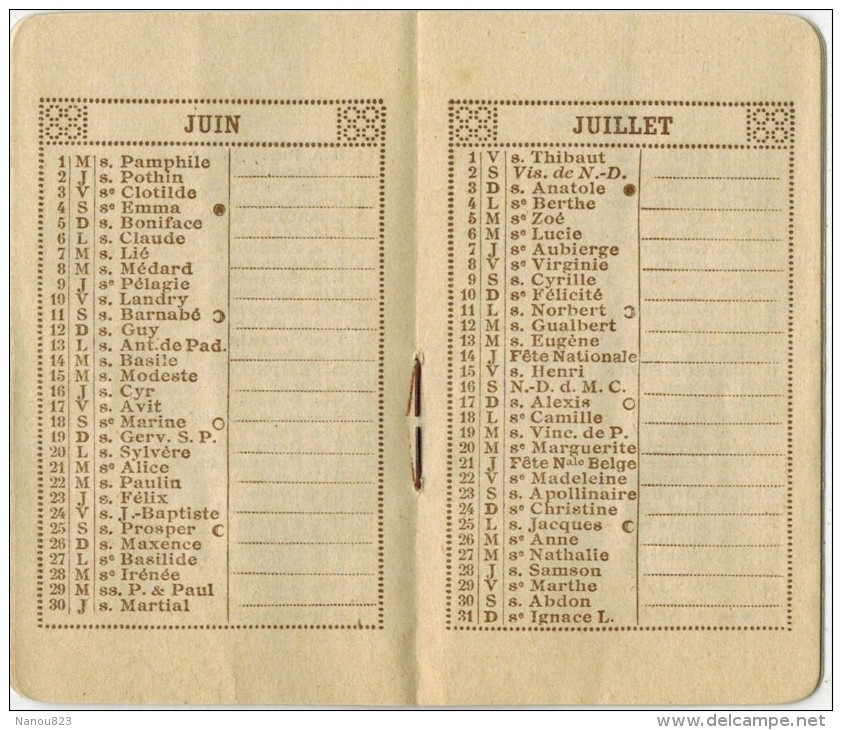 JUIN
1 M s. Pamphile
2 J s. Pothin
3 V sᵉ Clotilde
4 S sᵉ Emma
5 D s. Boniface
6 L s. Claude
7 M s. Lié
8 M s. Médard
9 J sᵉ Pélagie
10 V s. Landry
11 S s. Barnabé
12 D s. Guy
13 L s. Ant. de Pad.
14 M s. Basile
15 M s. Modeste
16 J s. Cyr
17 V s. Avit
18 S sᵉ Marine
19 D s. Gerv. S. P.
20 L s. Sylvère
21 M sᵉ Alice
22 M s. Paulin
23 J s. Félix
24 V s. J.-Baptiste
25 S s. Prosper
26 D s. Maxence
27 L sᵉ Basilide
28 M sᵉ Irénée
29 M ss. P. & Paul
30 J s. Martial
JUILLET
1 V s. Thibaut
2 S Vis. de N.-D.
3 D s. Anatole
4 L sᵉ Berthe
5 M sᵉ Zoé
6 M sᵉ Lucie
7 J sᵉ Aubierge
8 V sᵉ Virginie
9 S s. Cyrille
10 D sᵉ Félicité
11 L s. Norbert
12 M s. Gualbert
13 M s. Eugène
14 J Fête Nationale
15 V s. Henri
16 S N.-D. d. M. C.
17 D s. Alexis
18 L sᵉ Camille
19 M s. Vinc. de P.
20 M sᵉ Marguerite
21 J Fête Nᵃˡᵉ Belge
22 V sᵉ Madeleine
23 S s. Apollinaire
24 D sᵉ Christine
25 L s. Jacques
26 M sᵉ Anne
27 M sᵉ Nathalie
28 J s. Samson
29 V sᵉ Marthe
30 S s. Abdon
31 D sᵉ Ignace L.
Nanou823
www.delcampe.net